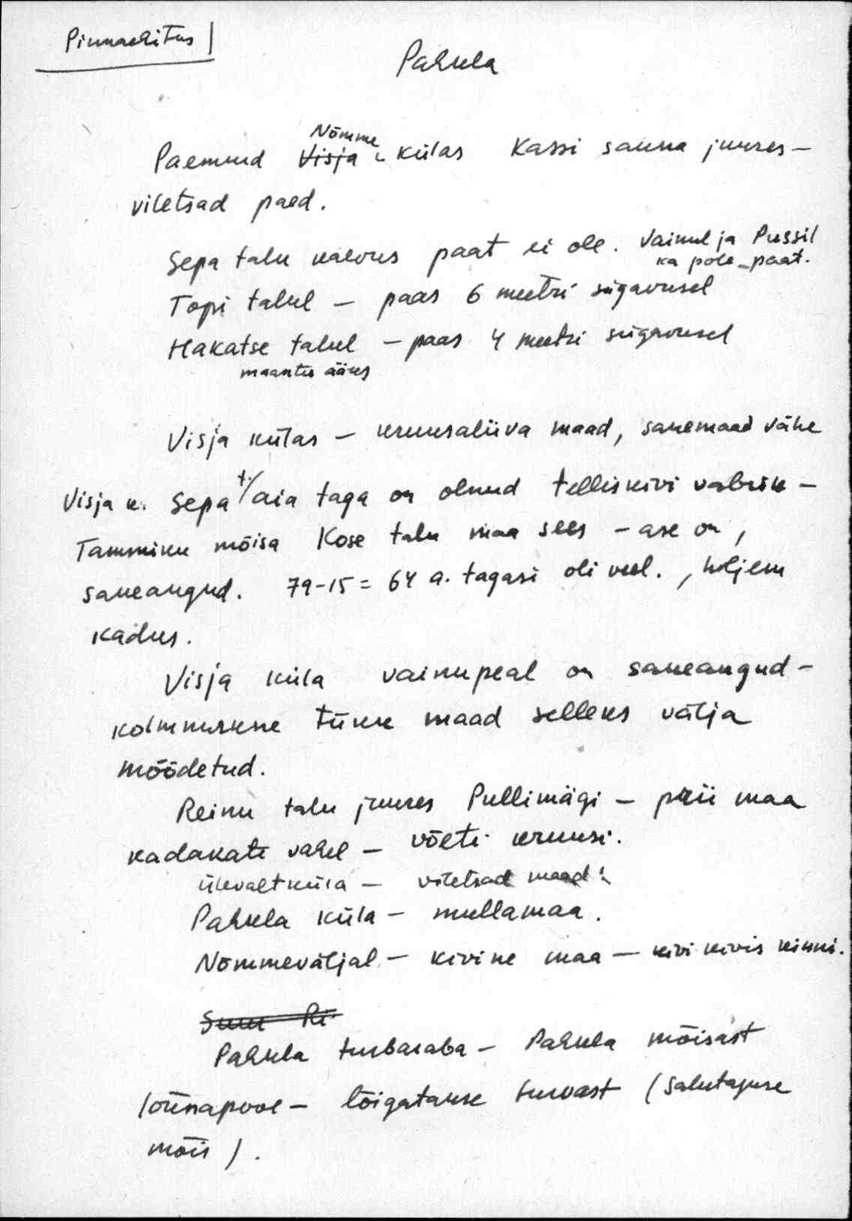 Pinnaehitus
Pahkla
Nõmme
Paemurd Visja külas Kassi sauna juures –
viletsad paed.
Sepa talu kaevus paat ei ole. Vainul ja Pussil
ka pole paat.
Topi talul – paas 6 meetri sügavusel
Hakatse talul – paas 4 meetri sügavusel
maantee ääres
Visja külas – kruusaliiva maad, savemaad vähe
Visja k. Sepa t/ aia taga on olnud telliskivi vabrik –
Tammiku mõisa Kose talu maa sees – ase on,
saveaugud. 79-15 = 64 a. tagasi oli veel. , hiljem
kadus.
Visja küla vainupeal on saveaugud –
kolmnurkne tükk maad selleks välja
mõõdetud.
Reinu talu juures Pullimägi – prii maa
kadakate vahel – võeti kruusi.
Ülevaltküla – viletsad maad
Pahkla küla – mullamaa.
Nõmmeväljal – kivine maa – kivi kivis kinni.
Suur
Pahkla turbaraba – Pahkla mõisast
lõunapool – lõigatakse turvast (Salutaguse
mõis).